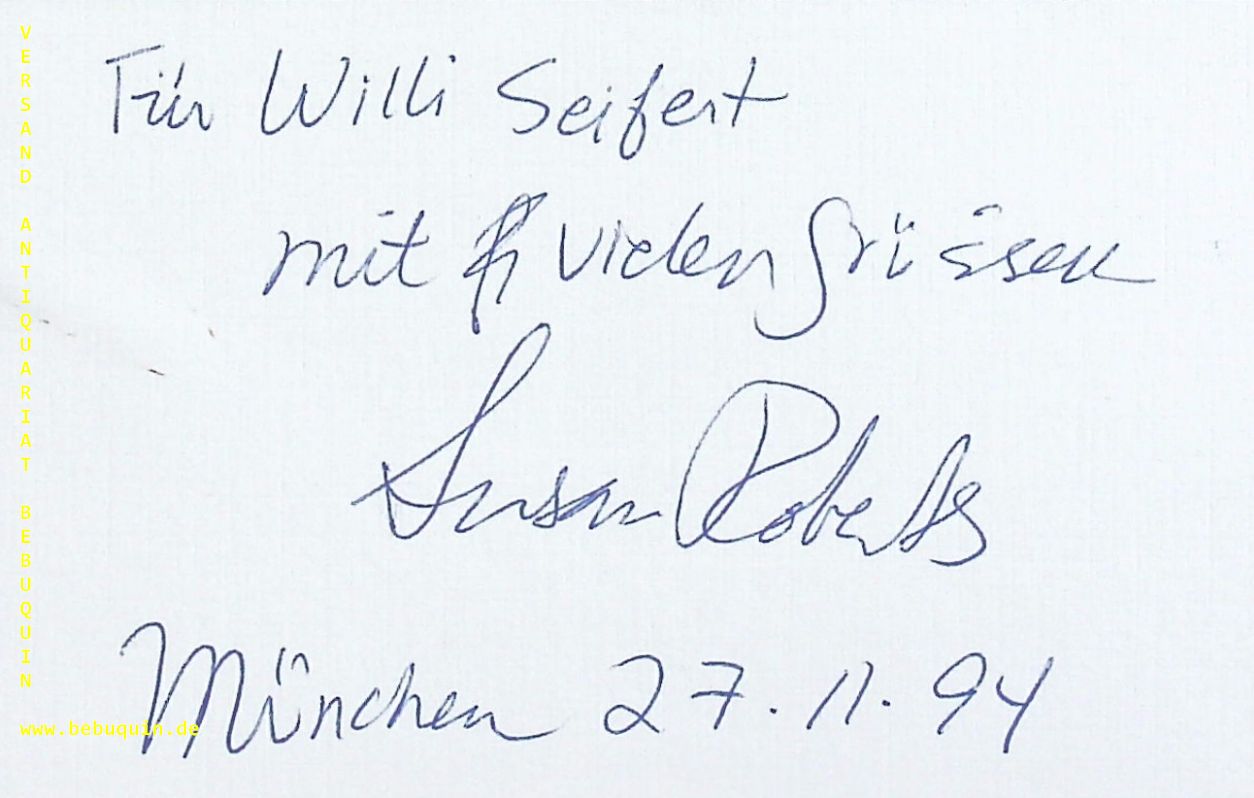 Für Willi Seifert
mit vielen Grüssen
Susan Roberts
München 27.11.94
VERSAND ANTIQUARIAT BEBUQUIN
www.bebuquin.de